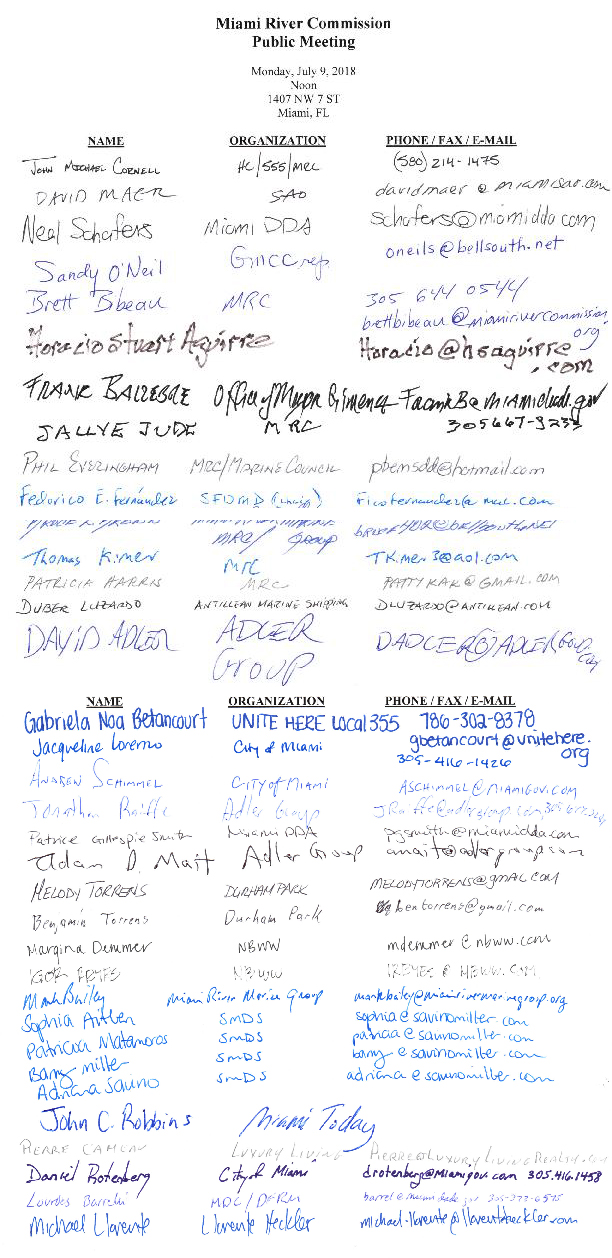 Miami River Commission
Public Meeting
Monday, July 9, 2018
Noon
1407 NW 7 ST
Miami, FL
NAME ORGANIZATION PHONE / FAX / E-MAIL
JOHN MICHAEL CORNELL HC/555/MRC (580) 214-1475
DAVID MAER SAO davidmaer@miamisao.com
Neal Schafers Miami DDA schafers@miamidda.com
Sandy O'Neil GMCC rep. oneils@bellsouth.net
Brett Bibeau MRC 305 644 0544
brettbibeau@miamirivercommission.org
Horacio Stuart Aguirre Horacio@hsaguirre.com
FRANK BALZEBRE Office of Mayor Gimenez FrankB@miamidade.gov
SALLYE JUDE MRC
PHIL EVERINGHAM MRC/MARINE COUNCIL pbemsdd@hotmail.com
Federico E. Fernández SFDMD
MRC/ GROUP
Thomas Kimen MRC TKimen3@aol.com
PATRICIA HARRIS MRC PATTYKAR@GMAIL.COM
DUBER LUZARDO ANTILLEAN MARINE SHIPPING DLUZARDO@ANTILLEAN.COM
DAVID ADLER ADLER Group
NAME ORGANIZATION PHONE / FAX / E-MAIL
Gabriela Noa Betancourt UNITE HERE Local 355 786-302-8378
gbetancourt@unitehere.org
Jacqueline Lorenzo City of Miami 305-416-1426
ANDREW SCHIMMEL CITY of MIAMI ASCHIMMEL@MIAMIGOV.COM
Jonathan Raiffe Adler Group
Patrice Gillespie Smith Miami DDA pgsmith@miamidda.com
Adam D. Mait Adler Group amait@adlergroup.com
MELODY TORRENS DURHAM PARK MELODYTORRENS@GMAIL.COM
Benjamin Torrens Durham Park bentorrens@gmail.com
Margina Demmer NBWW mdemmer@nbww.com
IGOR REYES NBWW IREYES@NBWW.COM
Mark Bailey Miami River Marine Group markbailey@miamirivermarinegroup.org
Sophia SMDS sophia@savinomiller.com
Patricia Matamoros SMDS patricia@savinomiller.com
Barry Miller SMDS barry@savinomiller.com
Adriana Savino SMDS adriana@savinomiller.com
John C. Robbins Miami Today
PIERRE LUXURY LIVING PIERRE@LUXURYLIVINGREALTY.COM
Daniel Rotenberg City of Miami drotenberg@miamigov.com 305.416.1458
Lourdes MDC/DERM
Michael Llorente Llorente Heckler michael.llorente@llorenteheckler.com